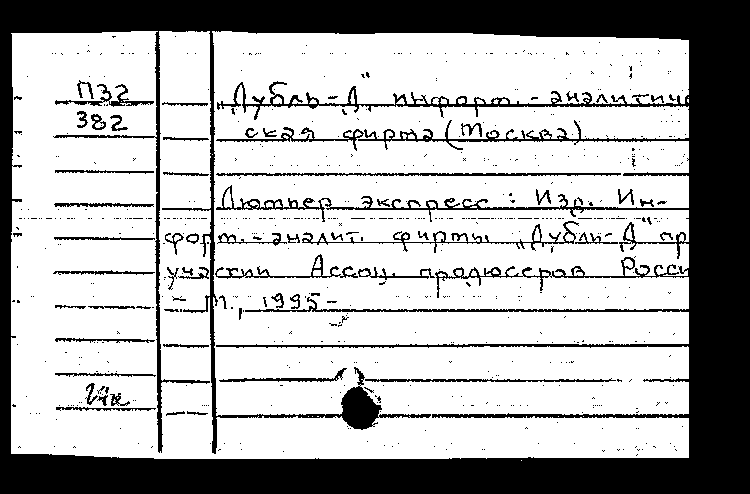 П32
382
„Дубль-Д" информ.-аналитиче
ская фирма (Москва)
экспресс : Изд. Ин-
форм.-аналит. фирмы „Дубль-Д" пр
участии Ассоц. продюсеровРосси
- М., 1995-